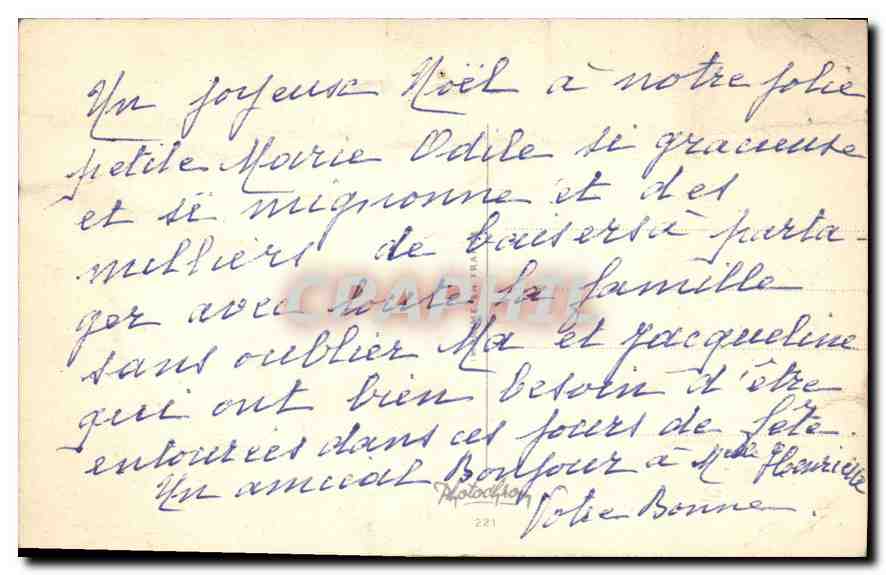 Un joyeux Noël à notre jolie
petite Marie Odile si gracieuse
et si mignonne et des
milliers de baisers à parta-
ger avec toute la famille
sans oublier Ma et Jacqueline
qui ont bien besoin d'être
entourées dans ces jours de fête.
Un amical Bonjour à Mme Henriette
Votre Bonne.
CRAPHIL
Photochrom
221